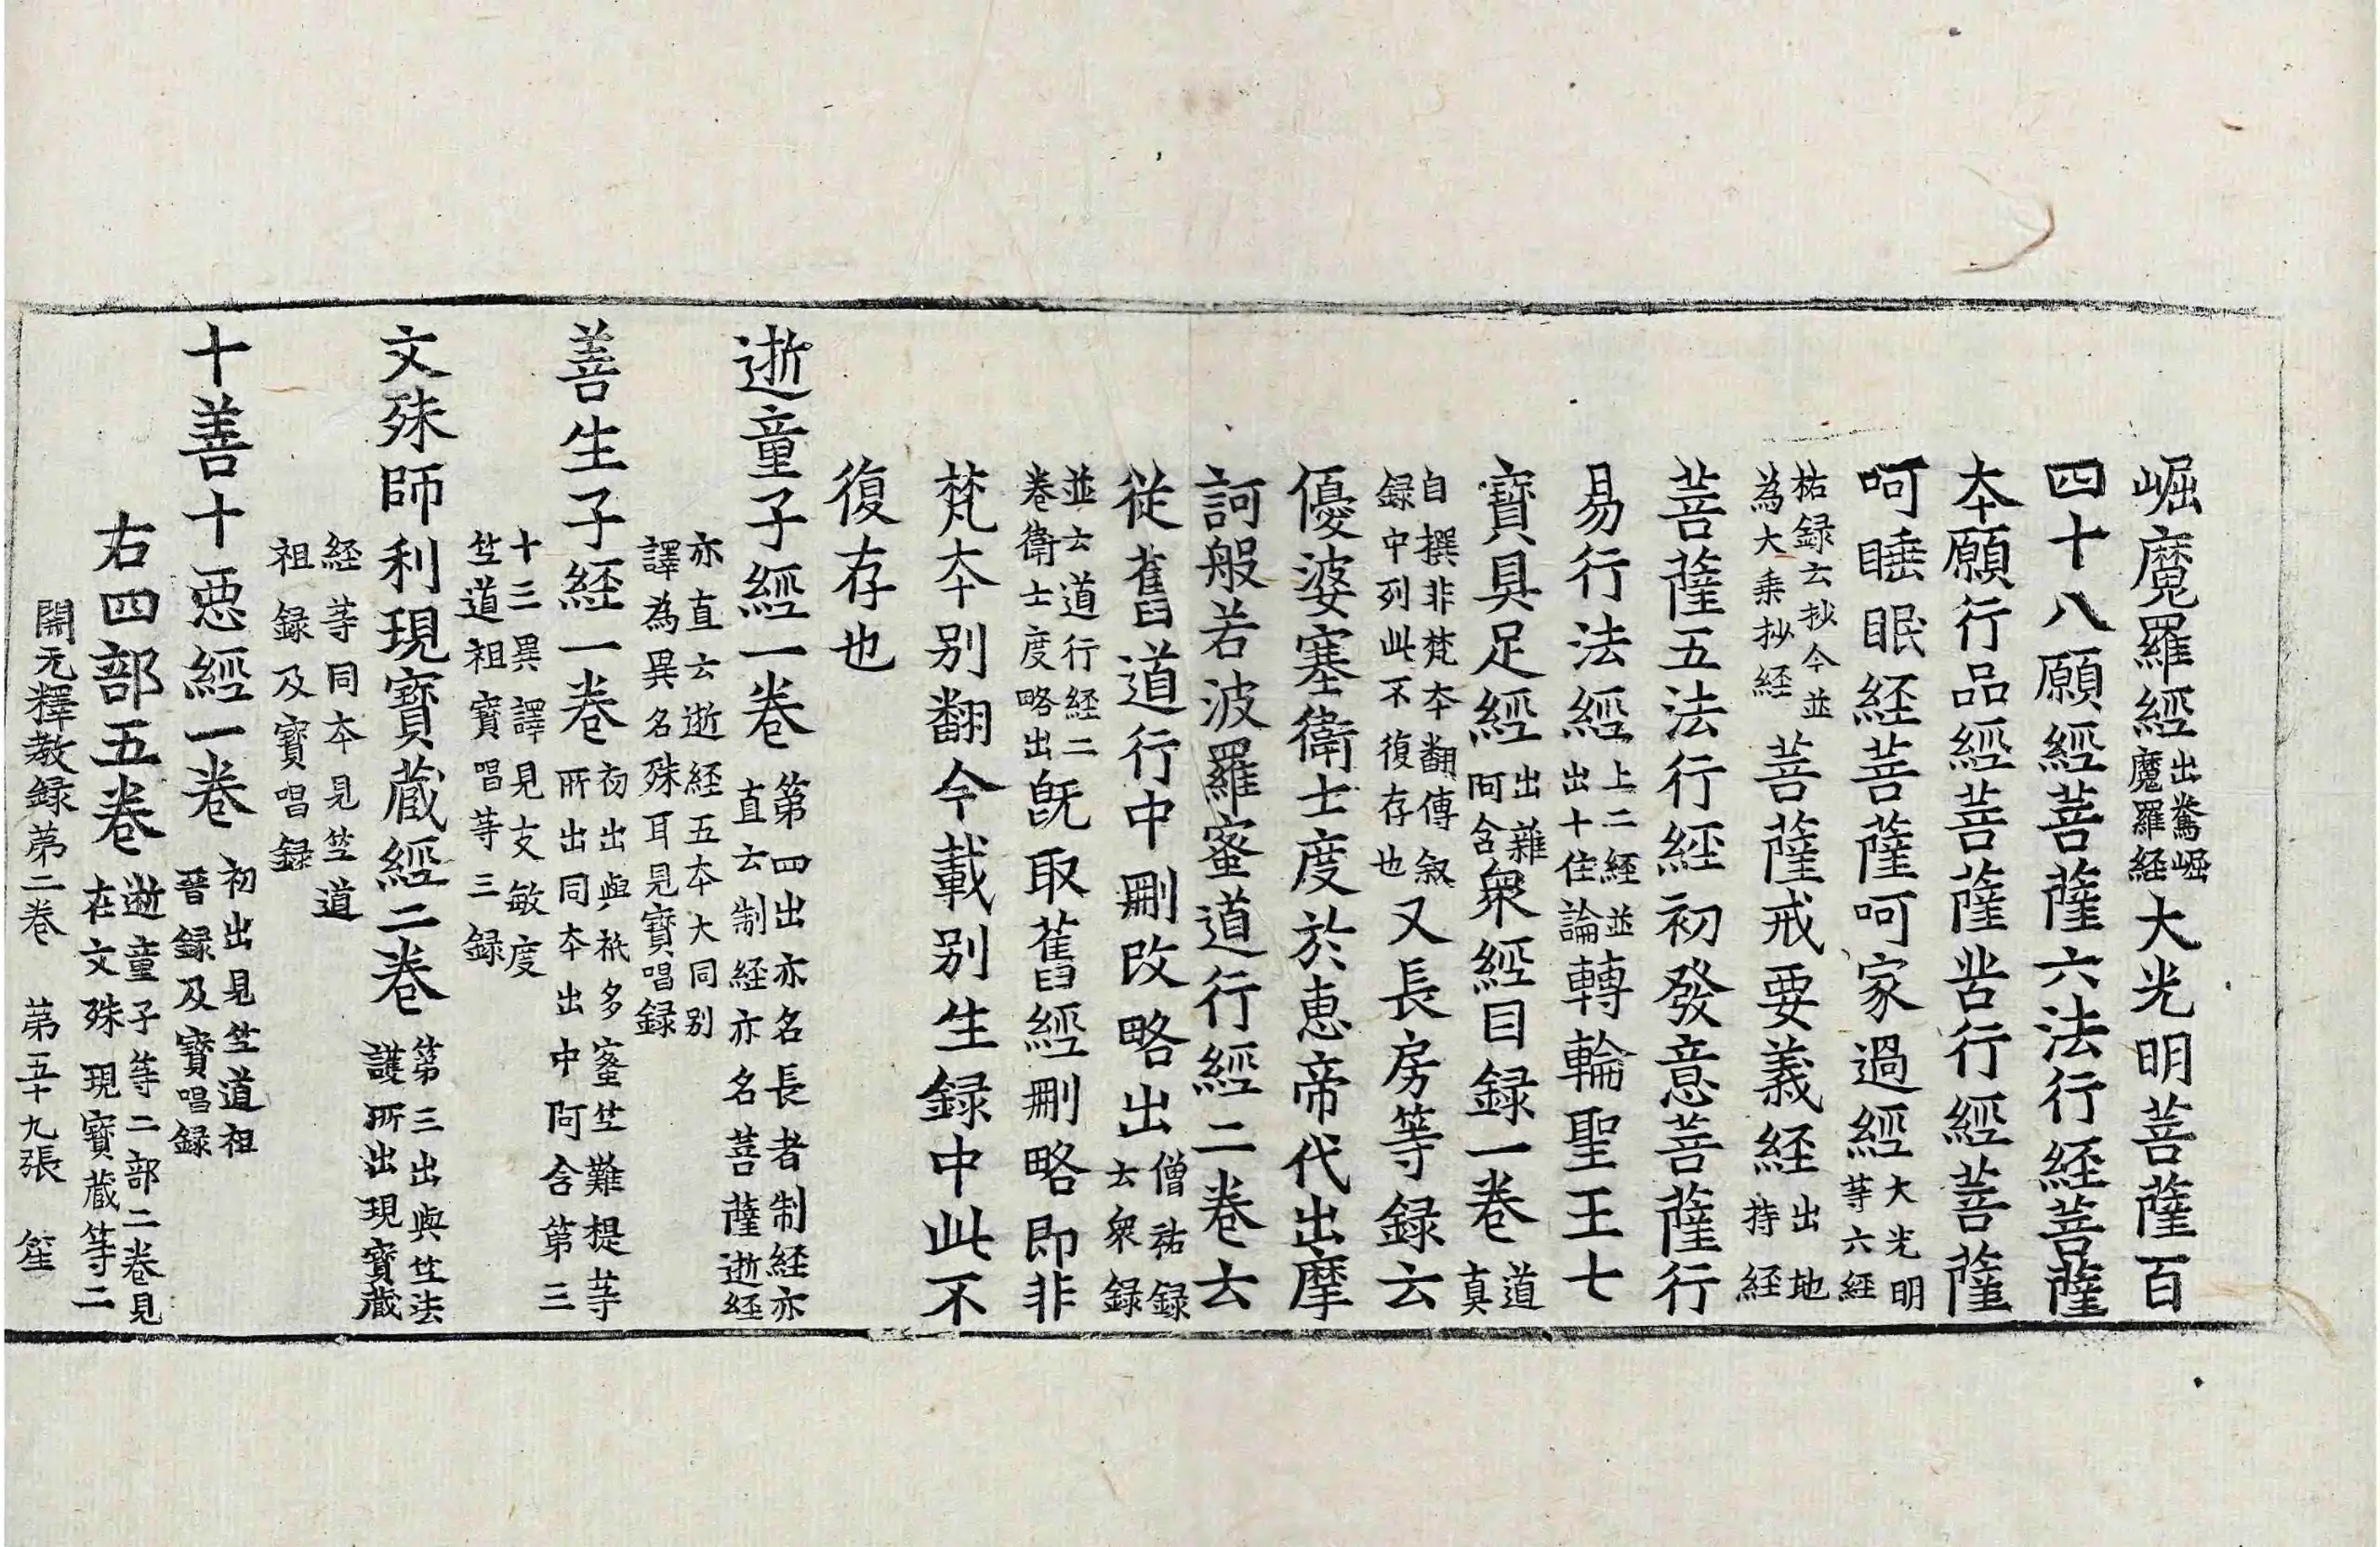 崛魔羅經出鴦崛魔羅経大光明菩薩百
四十八願經菩薩六法行経菩薩
本願行品經菩薩苦行經菩薩
呵睡眠経菩薩呵家過經大光明等六経
祐録云抄今並為大乗抄経菩薩戒要義経出地持経
菩薩五法行経初發意菩薩行
易行法經上二経並出十住論轉輪聖王七
寶具足經出雜阿含衆經目録一巻道真
自撰非梵本翻傳叙録中列此不復存也又長房等録云
優婆塞衛士度於恵帝代出摩
訶般若波羅蜜道行經二巻云
従舊道行中刪改略出僧祐録云衆録
並云道行経二巻衛士度略出旣取舊經刪略即非
梵本別翻今載別生録中此不
復存也
逝童子經一巻第四出亦名長者制経亦直云制経亦名菩薩逝経
亦直云逝経五本大同別譯為異名殊耳見寶唱録
善生子経一巻初出與祇多蜜竺難提等所出同本出中阿含第三
十三異譯見支敏度竺道祖寶唱等三録
文殊師利現寶蔵經二巻第三出與竺法護所出現寶蔵
経等同本見竺道祖録及寶唱録
十善十惡經一巻初出見竺道祖晉録及寶唱録
右四部五巻逝童子等二部二巻見在文殊現寶蔵等二
開元釋教録苐二巻　苐五十九張　笙